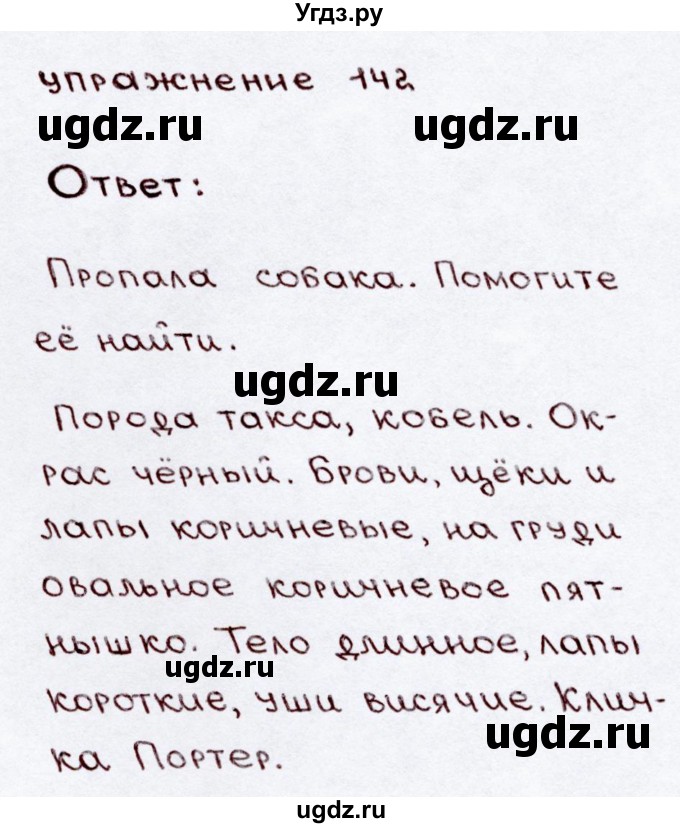 Угдз.ру
упражнение 142
ugdz.ru ugdz.ru
Ответ:
Пропала собака. Помогите
её найти.
ugdz.ru
Порода такса, кобель. Ок-
рас чёрный. Брови, щёки и
лапы коричневые, на груди
овальное коричневое пят-
нышко. Тело длинное, лапы
ugdz.ru
короткие, уши висячие. Клич-
ugdz.ru
ка Портер.
ugdz.ru